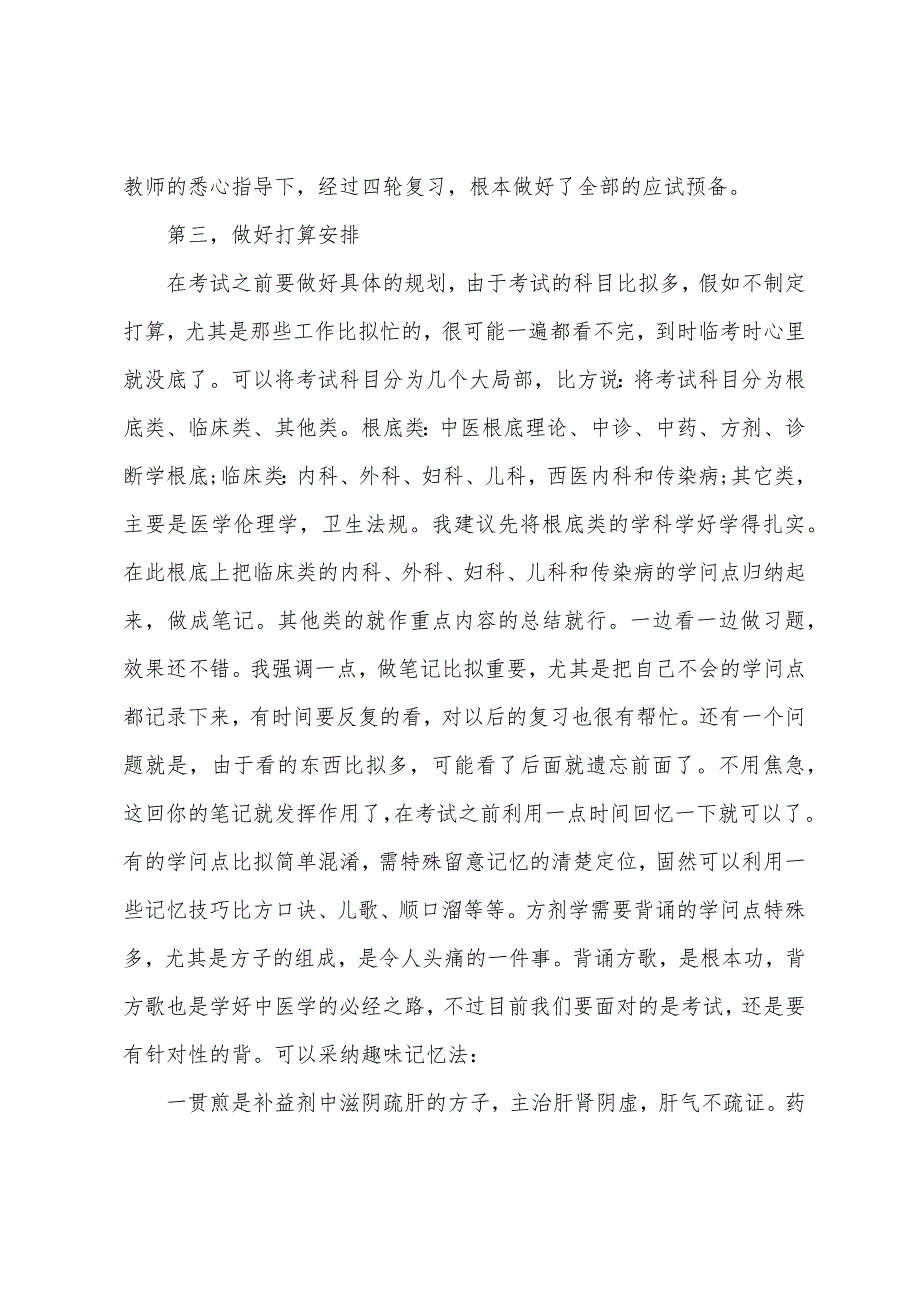 教师的悉心指导下，经过四轮复习，根本做好了全部的应试预备。
第三，做好打算安排
在考试之前要做好具体的规划，由于考试的科目比拟多，假如不制定
打算，尤其是那些工作比拟忙的，很可能一遍都看不完，到时临考时心里
就没底了。可以将考试科目分为几个大局部，比方说：将考试科目分为根
底类、临床类、其他类。根底类：中医根底理论、中诊、中药、方剂、诊
断学根底;临床类：内科、外科、妇科、儿科，西医内科和传染病;其它类，
主要是医学伦理学，卫生法规。我建议先将根底类的学科学好学得扎实。
在此根底上把临床类的内科、外科、妇科、儿科和传染病的学问点归纳起
来，做成笔记。其他类的就作重点内容的总结就行。一边看一边做习题，
效果还不错。我强调一点，做笔记比拟重要，尤其是把自己不会的学问点
都记录下来，有时间要反复的看，对以后的复习也很有帮忙。还有一个问
题就是，由于看的东西比拟多，可能看了后面就遗忘前面了。不用焦急，
这回你的笔记就发挥作用了，在考试之前利用一点时间回忆一下就可以了。
有的学问点比拟简单混淆，需特殊留意记忆的清楚定位，固然可以利用一
些记忆技巧比方口诀、儿歌、顺口溜等等。方剂学需要背诵的学问点特殊
多，尤其是方子的组成，是令人头痛的一件事。背诵方歌，是根本功，背
方歌也是学好中医学的必经之路，不过目前我们要面对的是考试，还是要
有针对性的背。可以采纳趣味记忆法：
一贯煎是补益剂中滋阴疏肝的方子，主治肝肾阴虚，肝气不疏证。药